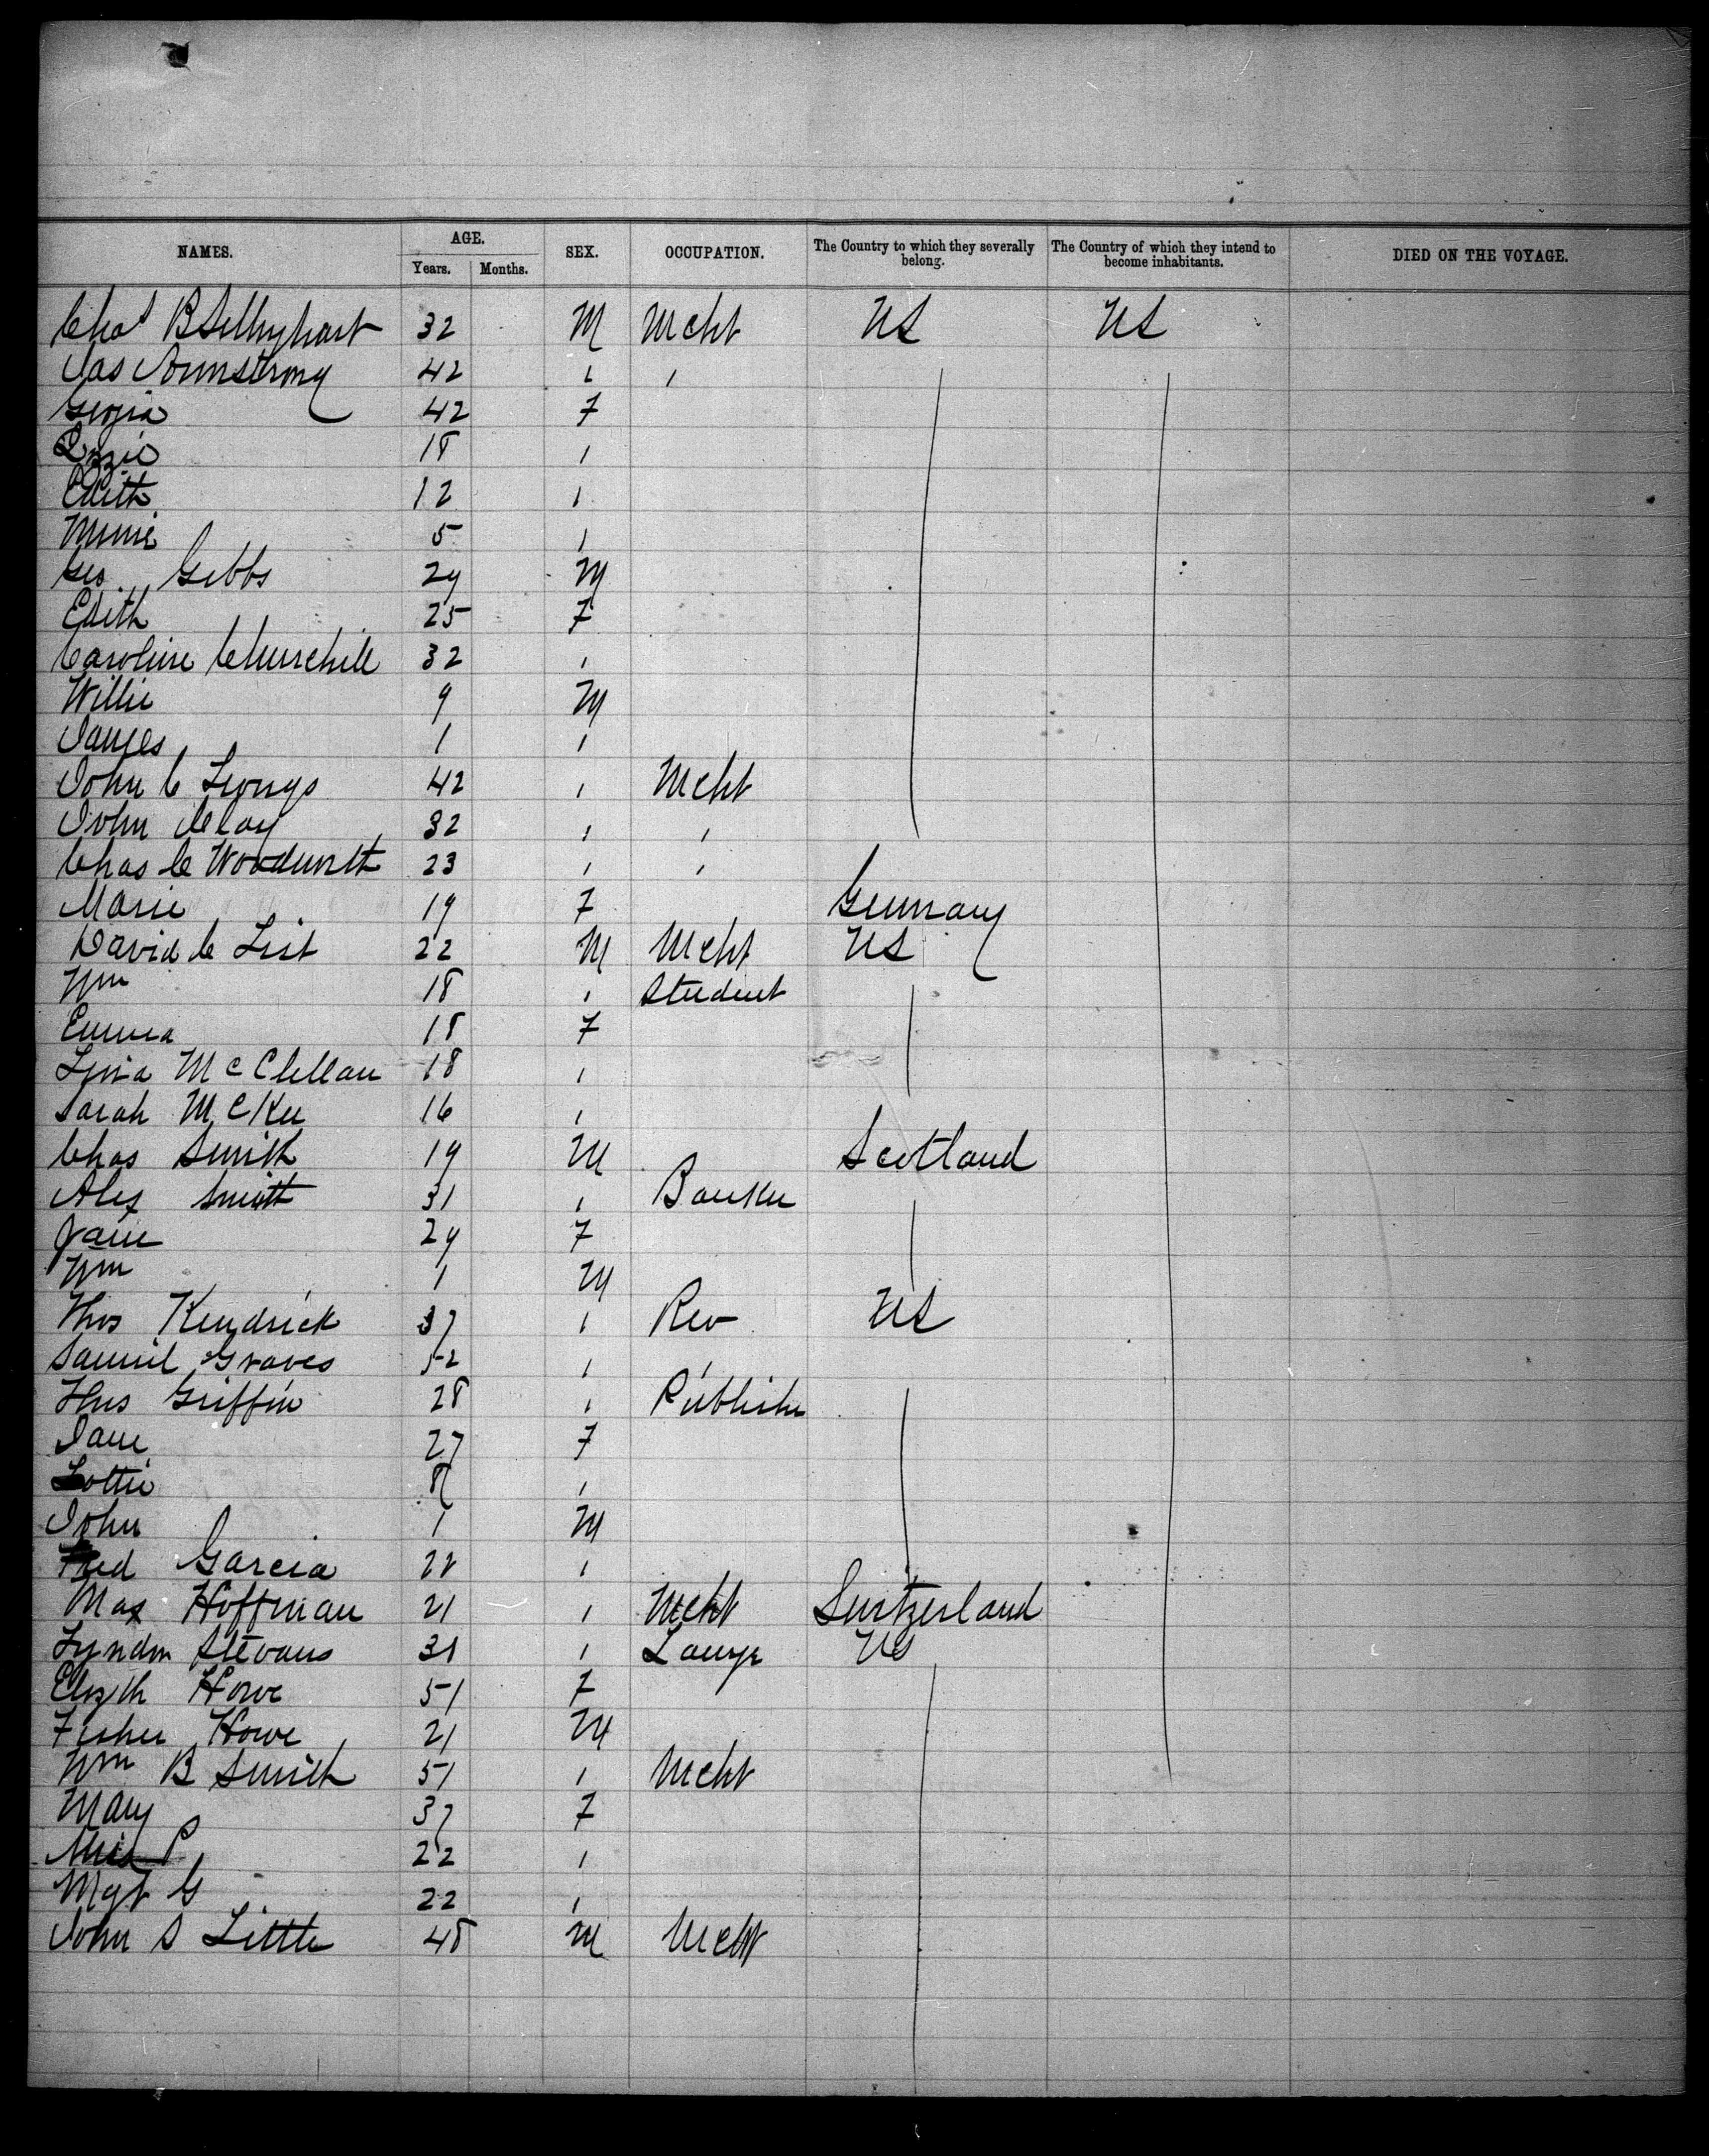 NAMES. AGE. SEX. OCCUPATION. The Country to which they severally belong. The Country of which they intend to become inhabitants. DIED ON THE VOYAGE.
Years. Months.
Chas B 32 M Mcht US US
Jas Armstrong 42 " "
Georgia 42 F
Lizzie 18 "
Edith 12 "
Minnie 5 "
Geo Gibbs 29 M
Edith 25 F
Caroline Churchill 32 "
Willie 9 M
James 1 "
John C 42 " Mcht
John Clay 32 " "
Chas C 23 " "
Marie 19 F Germany
David C List 22 M Mcht US
Wm 18 " Student
Emma 18 F
McClellan 18 "
Sarah McKee 16 "
Chas Smith 19 M Scotland
Alex Smith 31 " Banker
Jane 29 F
Wm 1 M
Thos Kendrick 37 " Rev US
Samuel Graves 52 " "
Thos Griffin 28 " Publisher
Jane 27 F
Lottie 8 "
John 1 M
Fred Garcia 22 "
Max Hoffman 21 " Mcht Switzerland
Lyndon Stevans 31 " Lawyr US
Elizth Howe 51 F
Fisher Howe 21 M
Wm B Smith 51 " Mcht
Mary 37 F
Miss P 22 "
Mgt G 22 "
John S Little 48 M Mcht